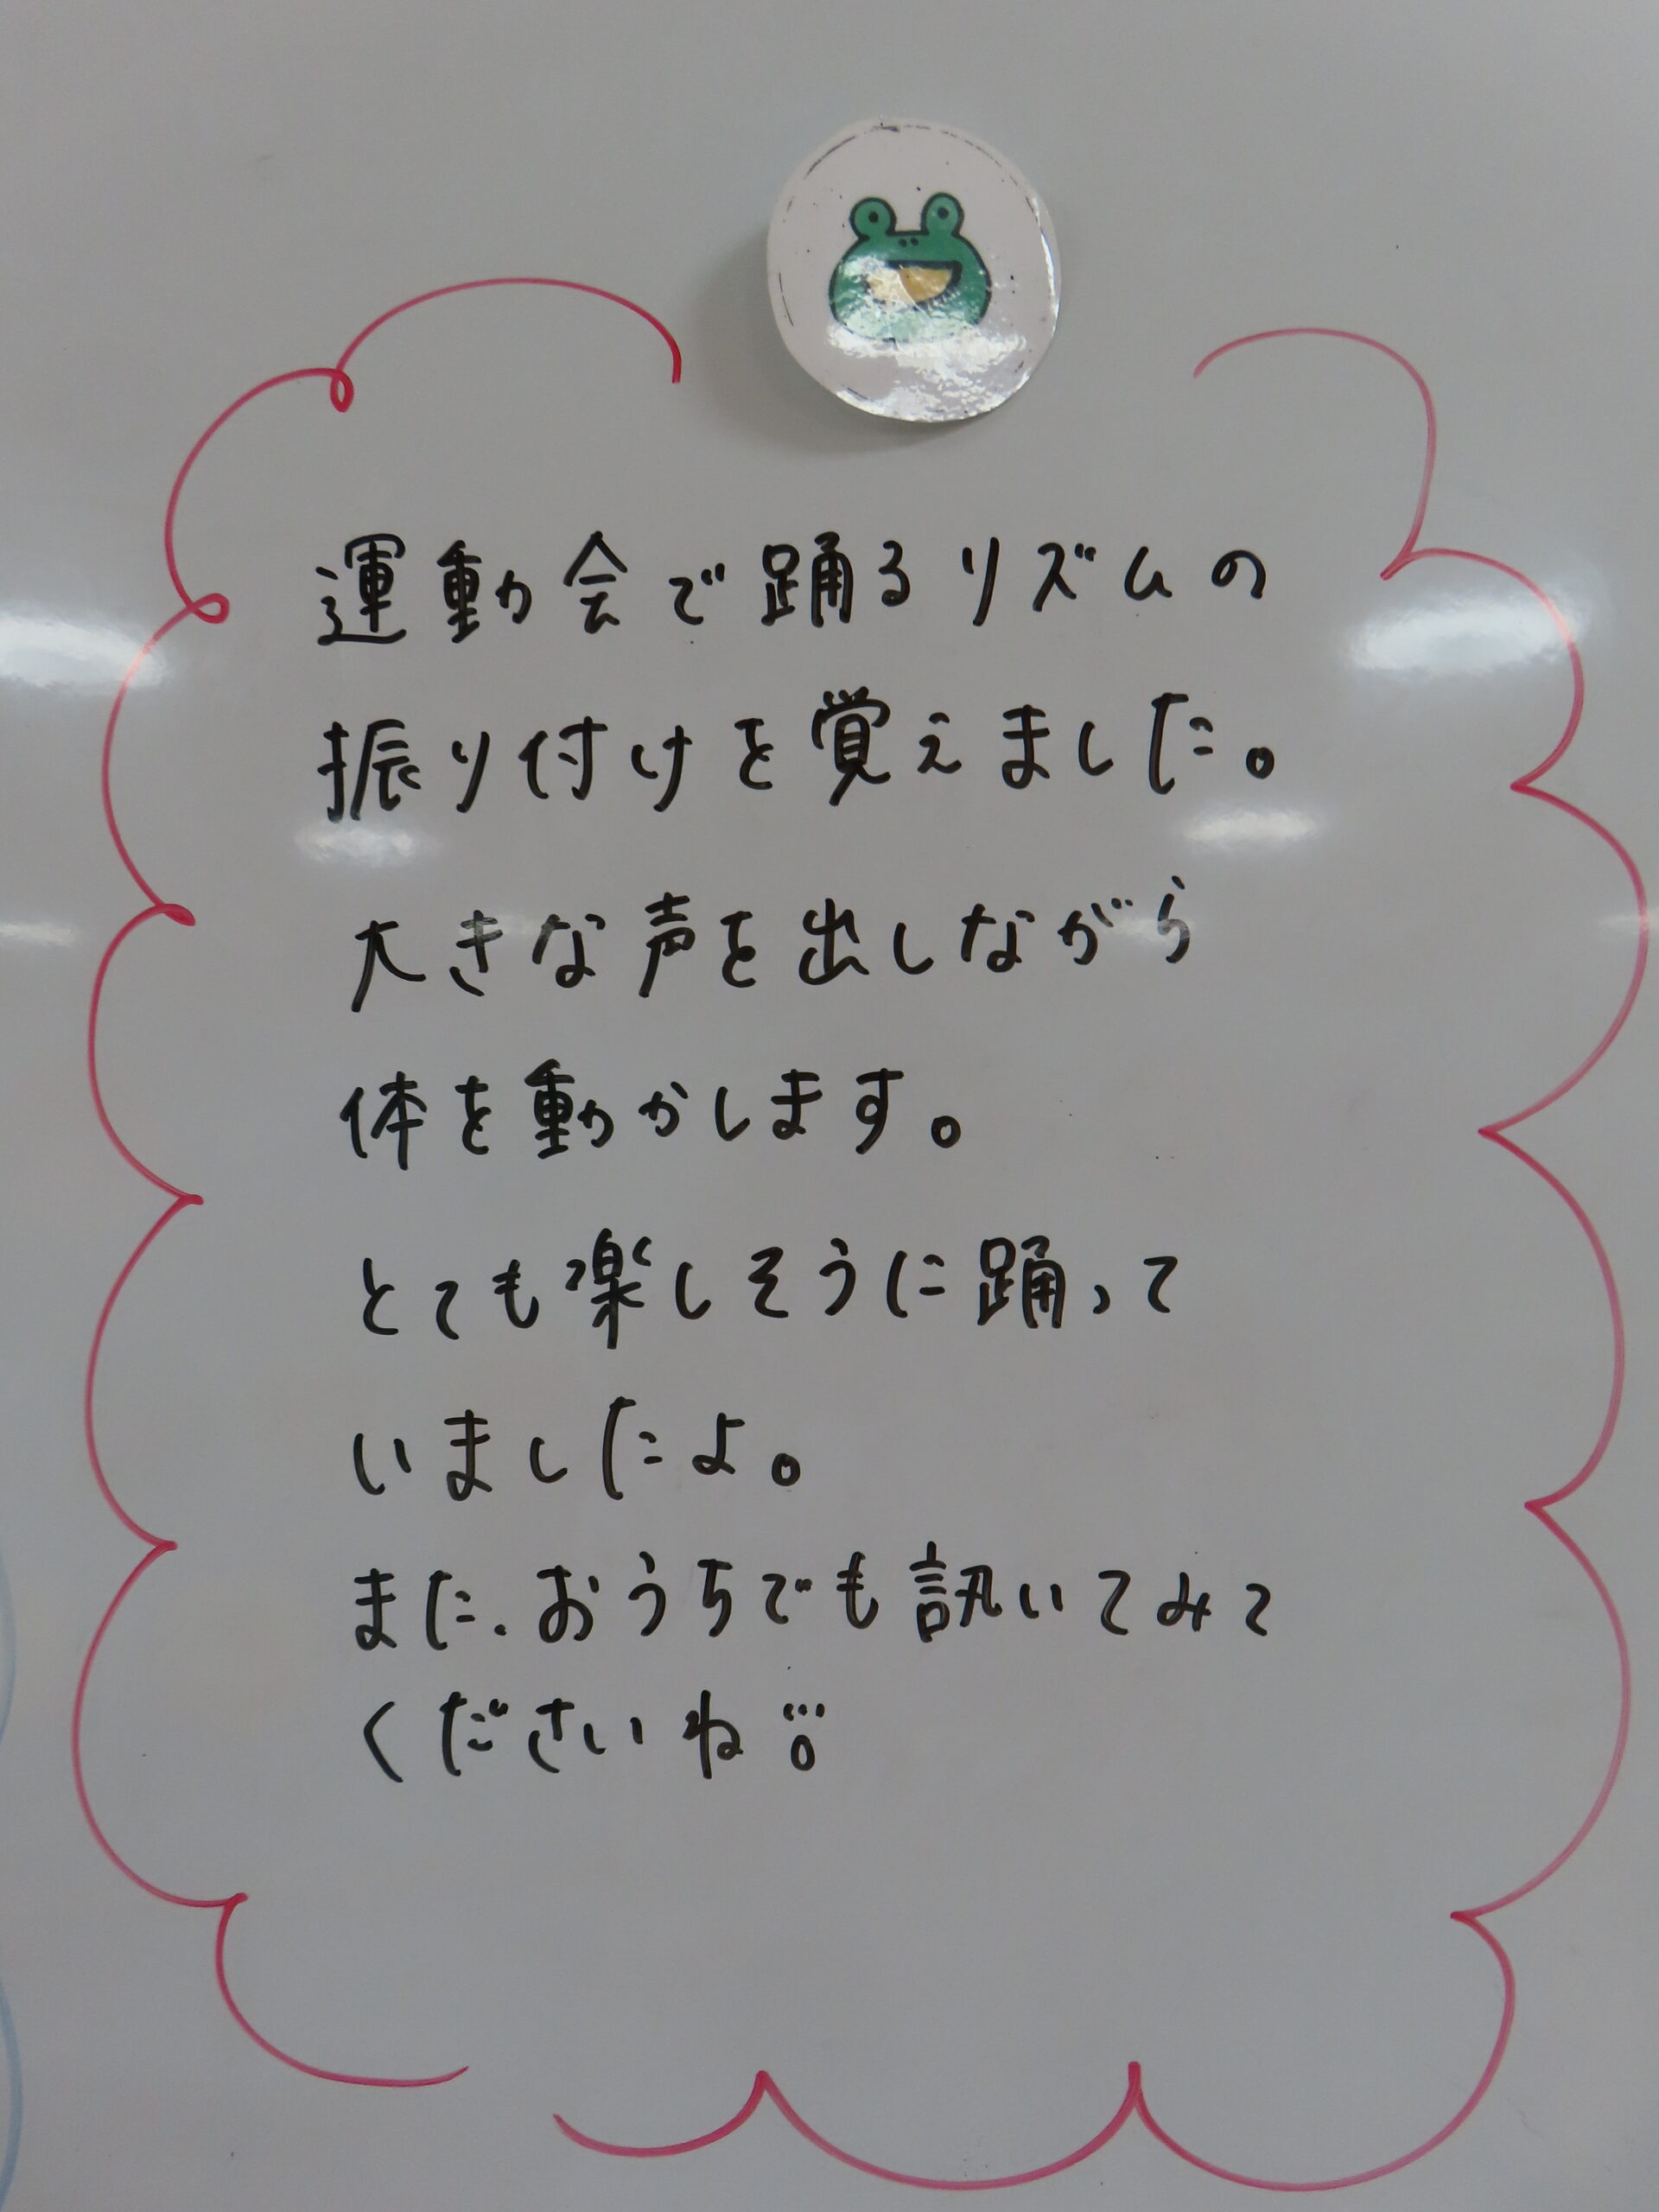 運動会で踊るリズムの
振り付けを覚えました。
大きな声を出しながら
体を動かします。
とても楽しそうに踊って
いましたよ。
また、おうちでも訊いてみて
くださいね